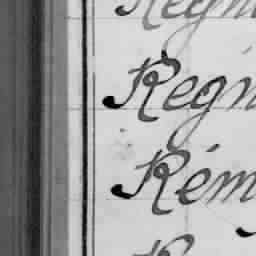 Regn
Regn
Rém